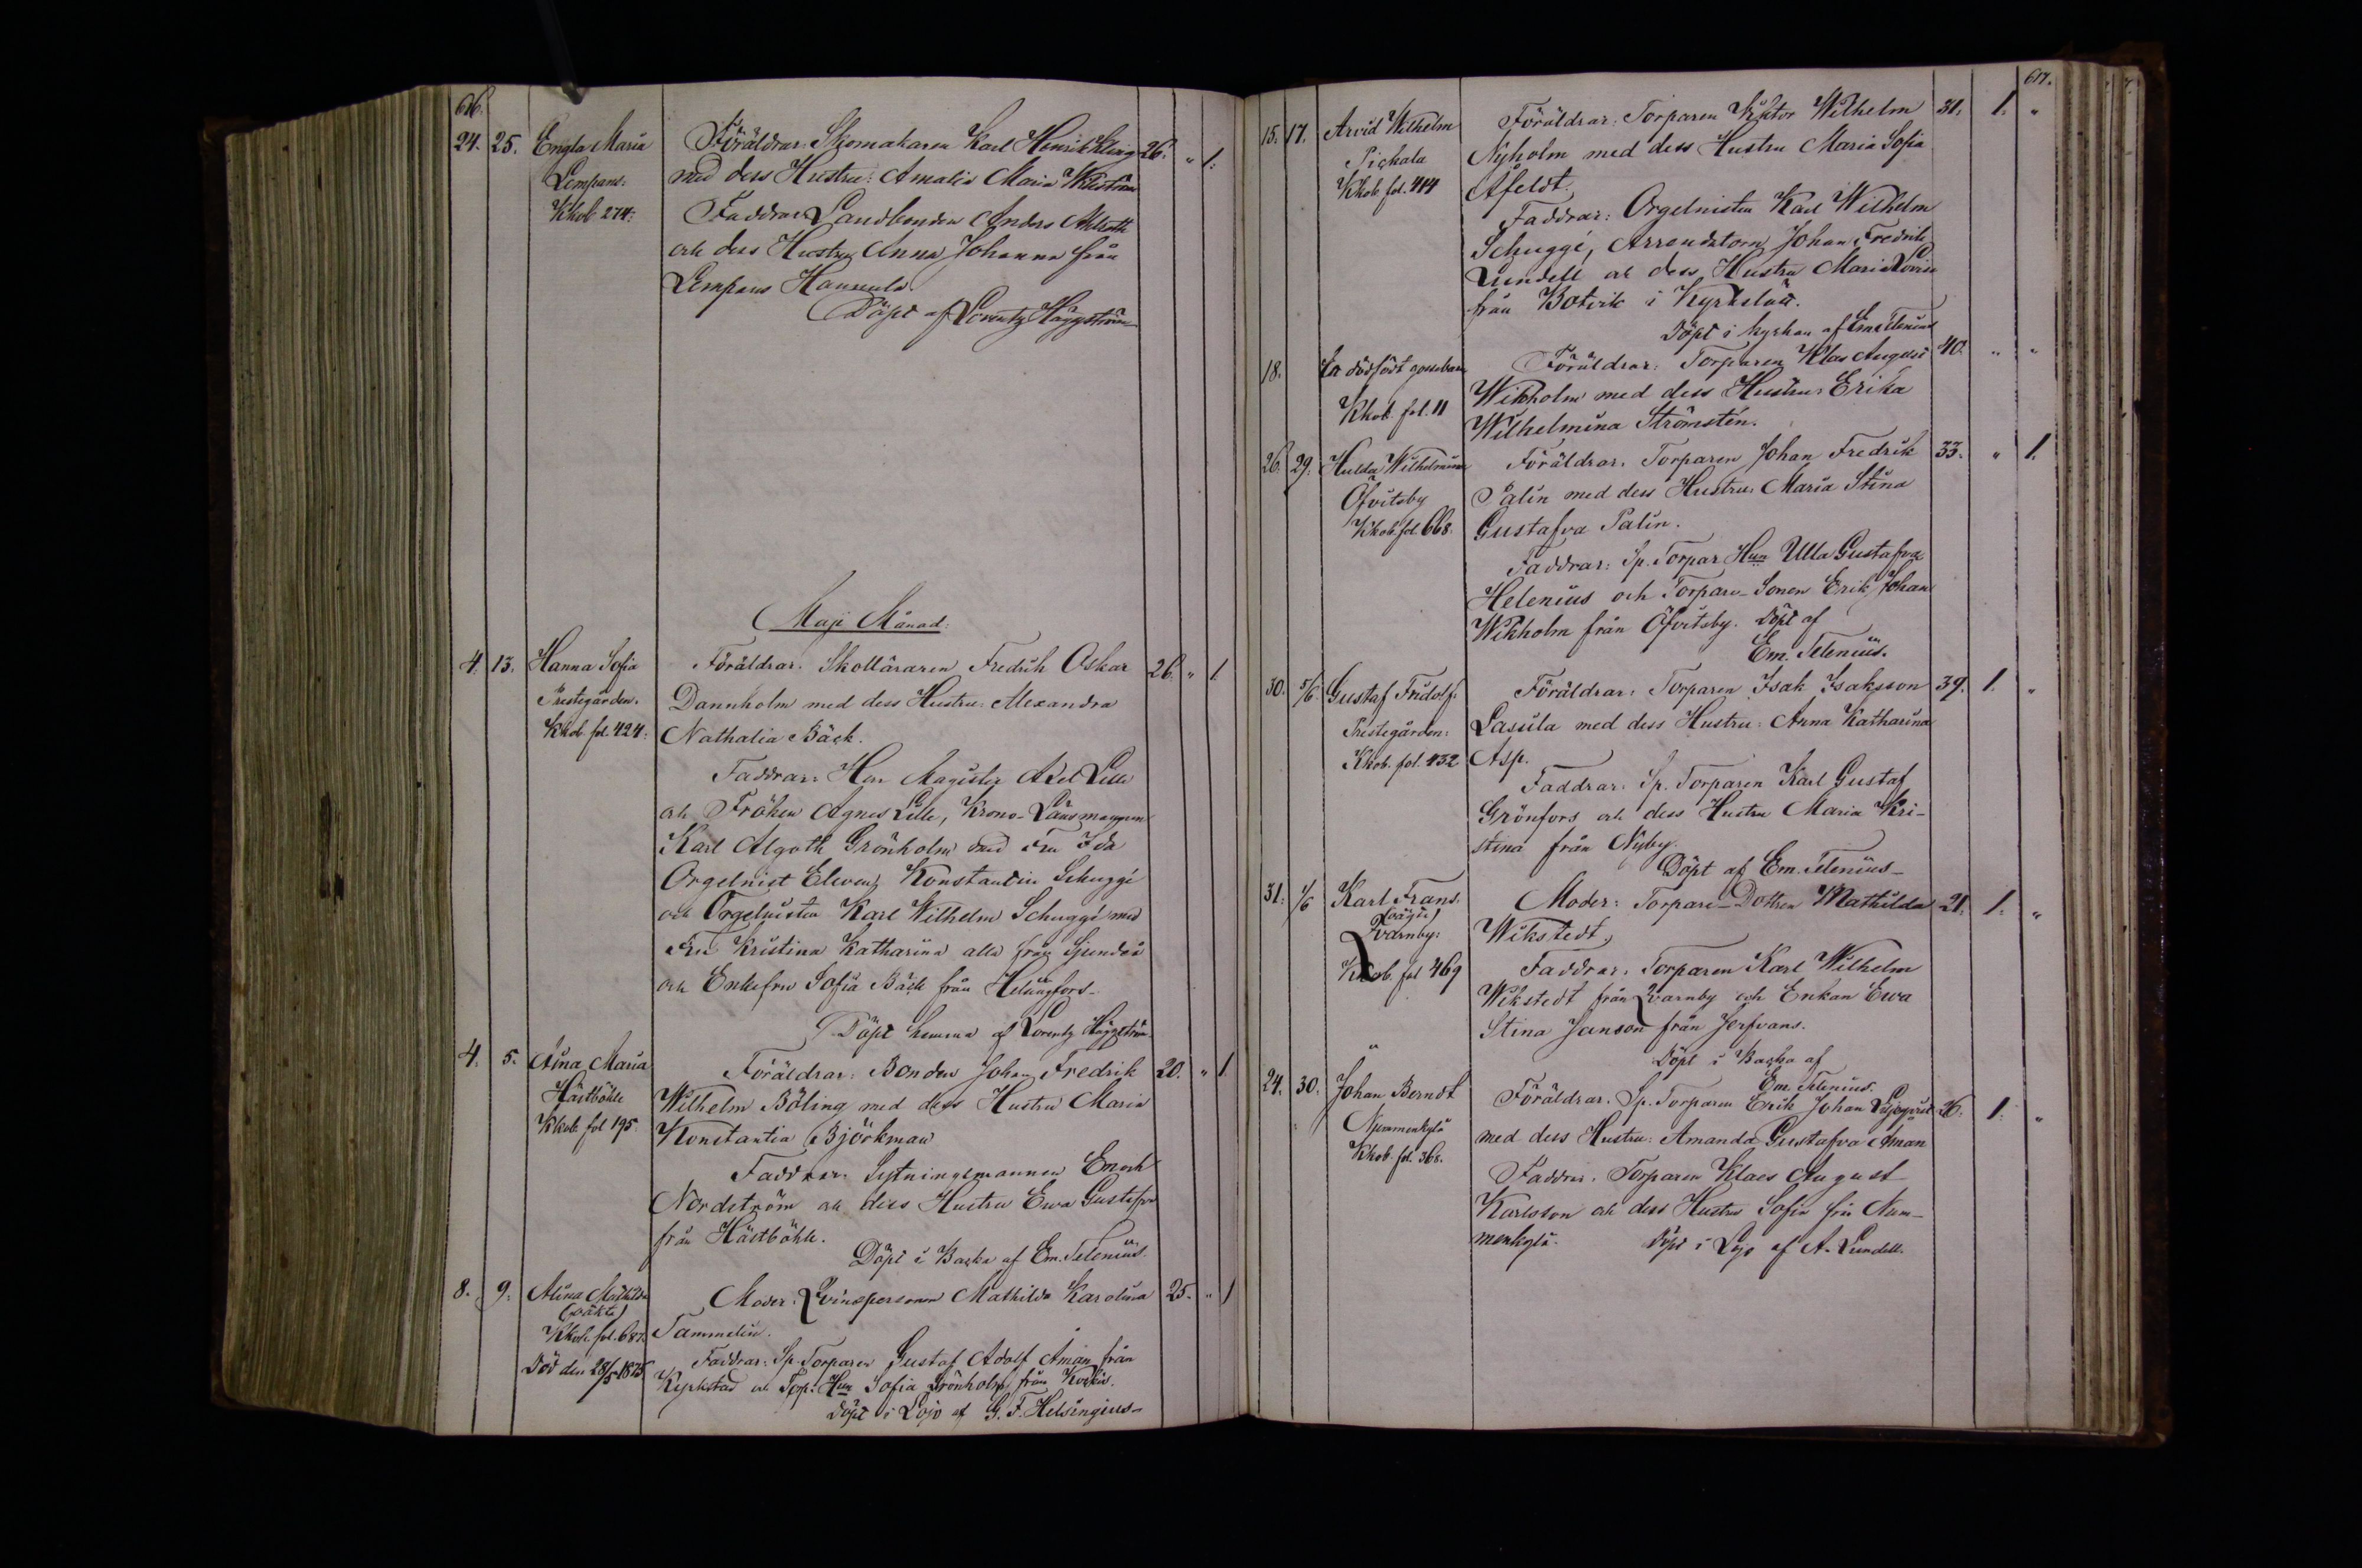 616.
24. 25. Engla Maria Föräldrar: Skomakaren Karl Henrik Kling 26. " 1.
Lempans: med dess Hustru: Amalia Maria Wikström
Kkob 274: Faddrar Landbonden Anders Ahlroth
och dess Hustru Anna Johanna från
Lempans Hannula.
Döpt af Lorentz Häggström
Maji Månad:
4. 13. Hanna Sofia Föräldrar: Skolläraren Fredrik Oskar 26. " 1.
Prestegården. Dannholm med dess Hustru Alexandra
Kkob fol. 424: Nathalia Bäck.
Faddrar: Herr Magister Axel Lille
och Fröken Agnes Lille, Krono-Länsmannen
Karl Algoth Grönholm med Fru Ida
Orgelnist Eleven Konstantin Schuggé
och Orgelnisten Karl Wilhelm Schuggé med
Fru Kristina Katharina alla från Sjundeå
och Enkefru Sofia Bäck från Helsingfors.
Döpt hemma af Lorentz Häggström
4. 5. Aina Maria Föräldrar: Bonden Johan Fredrik 20. " 1.
Hästböhle Wilhelm Böling med dess Hustru Maria
Kkob fol 195. Konstantia Björkman
Faddrar: Sytningsmannen Enoch
Nordström och dess Hustru Ewa Gustafva
från Hästböhle.
Döpt i Backa af Em. Telenius.
8. 9. Alina Mathilda Moder: Qvinspersonen Mathilda Karolina 25. " 1
(oäkta)
Kkob. fol. 687. Tammelin.
Död den 28/5 1875 Faddrar: Sp. Torparen Gustaf Adolf Åman från
Kyrkstad och Torp: Hun Sofia Grönholm från Koskis.
Döpt i Lojo af G. F. Helsingius
617.
15. 17. Arvid Wilhelm Föräldrar: Torparen Viktor Wilhelm 31. 1. "
Pickala Nyholm med dess Hustru Maria Sofia
Kkob. fol. 414 Afeldt.
Faddrar: Orgelnisten Karl Wilhelm
Schuggé, Arrendatorn Johan Fredrik
Lundell och dess Hustru Maria Lovisa
från Botvik i Kyrkslätt.
Döpt i kyrkan af Em Telenius
18. En dödfödt gossebarn Föräldrar: Torparen Klas August 40. " "
Kkob. fol. 11 Wikholm med dess Hustru Erika
Wilhelmina Strömstén.
26. 29. Hulda Wilhelmina Föräldrar: Torparen Johan Fredrik 33. " 1.
Öfvitsby Palin med dess Hustru Maria Stina
Kkob. fol. 668. Gustafva Palin.
Faddrar: Sp. Torpar Hun Ulla Gustafva
Helenius och Torpare-Sonen Erik Johan
Wikholm från Öfvitsby. Döpt af
Em. Telenius.
30. 5/6 Gustaf Fridolf: Föräldrar: Torparen Isak Isaksson 39. 1. "
Prestegården: Lasula med dess Hustru: Anna Katharina
Kkob. fol. 432 Asp.
Faddrar: Sp. Torparen Karl Gustaf
Grönfors och dess Hustru Maria Kri-
stina från Nyby.
Döpt af Em. Telenius
31. 1/6 Karl Frans. Moder: Torpare-Dottren Mathilda 21. 1. "
(oägta)
Qvarnby: Wikstedt.
Kkob. fol 469 Faddrar: Torparen Karl Wilhelm
Wikstedt från Qvarnby och Enkan Ewa
Stina Janson från Jerfvans.
Döpt i Backa af
Em. Telenius.
24. 30. Johan Berndt Föräldrar. Sp. Torparen Erik Johan Liljeqvist 26. 1. "
Nummenkylä med dess Hustru: Amanda Gustafva Åman
Kkob. fol. 368. Faddrar. Torparen Klaes August
Karlsson och dess Hustru Sofia från Num-
menkylä. Döpt i Lojo af A. Lundell.